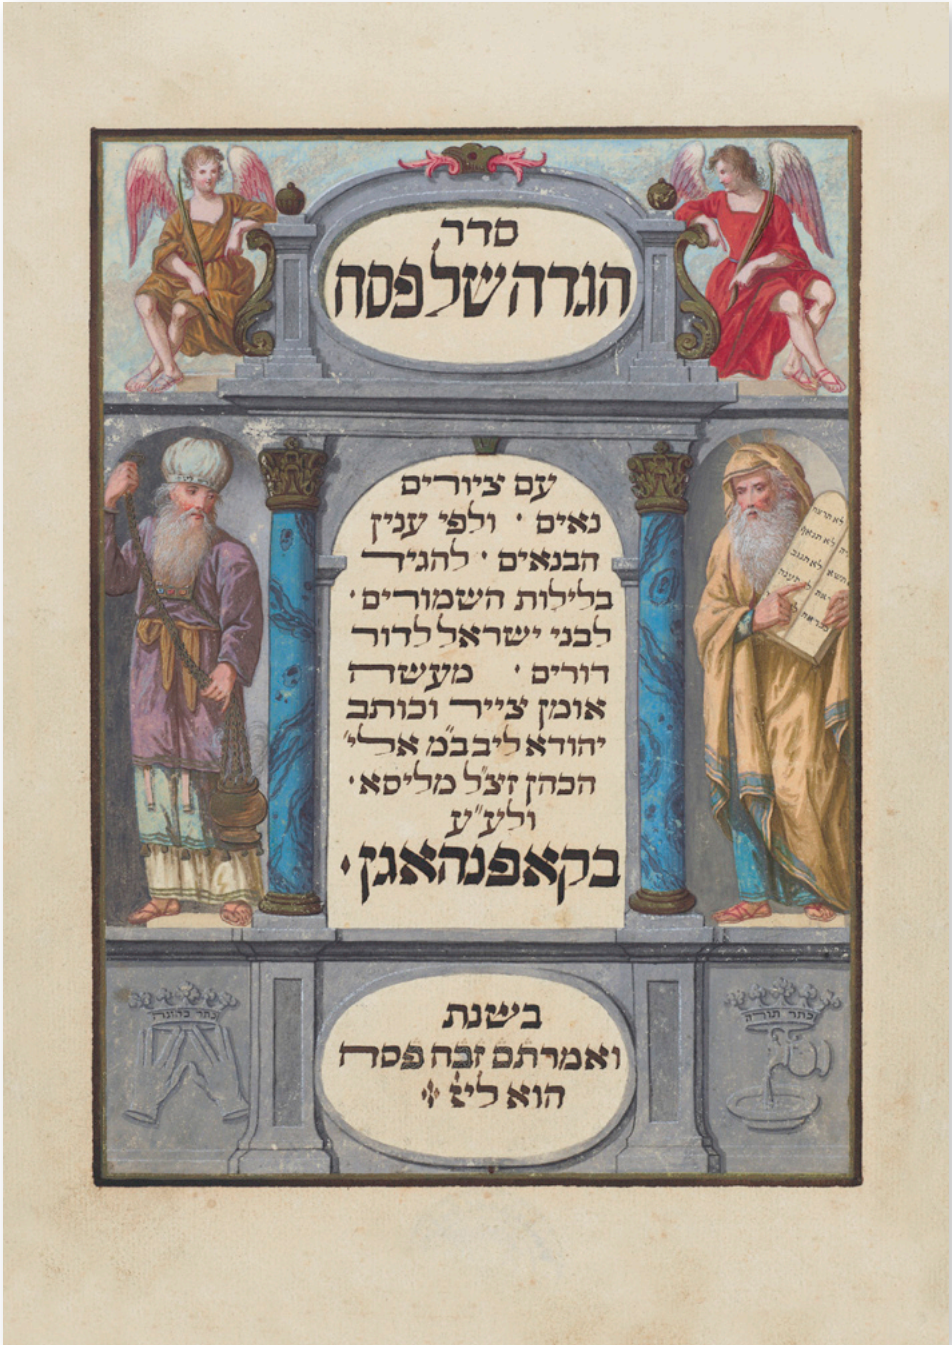 סדר
הגדה של פסח
עם ציורים
נאים · ולפי ענין
הבנאים · להגיד
בלילות השמורים ·
לבני ישראל לדור
דורים · מעשה
אומן צייר וכותב
יהודא ליב ב״מ אלי״
הכהן זצ״ל מליסא ·
ולע״ע
בקאפנהאגן ·
לא תרצח
לא תנאף
לא תגנוב
לא תענה
כתר תורה
כתר כהונה
בשנת
ואמרתם זבח פסח
הוא לי״י